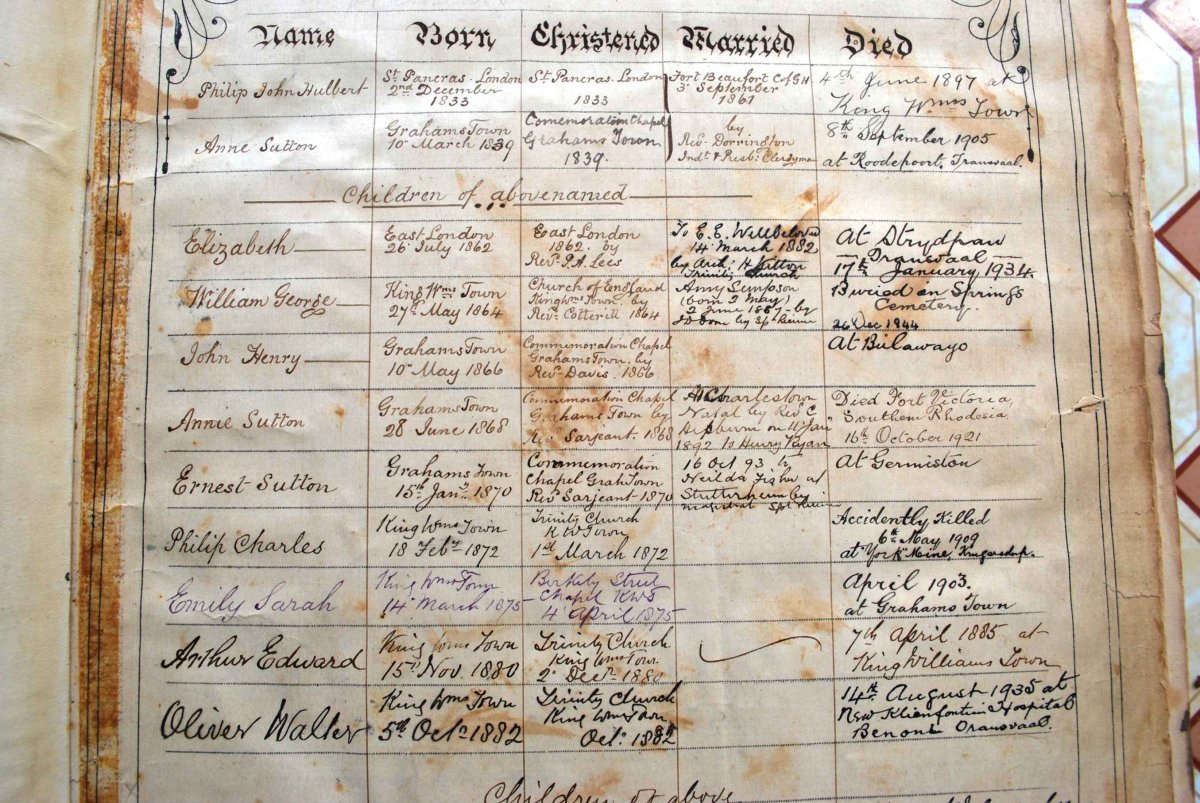 Name Born Christened Married Died
Philip John Hulbert
St Pancras London
2nd December
1833
St Pancras London
1833
Fort Beaufort C of G H
3 September
1861
4th June 1897 at
King Wms Town
Anne Sutton
Grahams Town
10 March 1839
Comemoration Chapel
Grahams Town
1839.
by
Rev. Dorrington
Indt & Presb. Clergyman
8th September 1905
at Roodepoort, Transvaal.
Children of abovenamed
Elizabeth
East London
26 July 1862
East London
1862. by
Revd P.A. Lees
To E. E. Wellbeloved
14 March 1882
by Arch. H Kitton
Trinity Church
At Strydpan
Transvaal
17th January 1934.
William George
King Wms Town
27th May 1864
Church of England
King Wm Town. by
Revd Cotterill 1864
Amy Simpson
(born 2 May)
2 June 1887 - by
by Spl
Buried in Springs
Cemetery.
26 Dec 1944
John Henry
Grahams Town
10th May 1866
Commemoration Chapel
Grahams Town. by
Revd Davis. 1866
At Bulawayo
Annie Sutton
Grahams Town
28 June 1868
Commemoration Chapel
Grahams Town by
Revd Sarjeant. 1868
At Charlestown
Natal by Rev C
Hepburn on 11 Jan
1892 to Henry
Died Fort Victoria,
Southern Rhodesia
16th October 1921
Ernest Sutton
Grahams Town
15th Jany 1870
Commemoration
Chapel Grah Town
Revd Sarjeant 1870
16 Oct 93 to
Fisher at
Stutterheim by
Spl
At Germiston
Philip Charles
King Wms Town
18 Feby 1872
Trinity Church
K W Town
1st March 1872
Accidently Killed
6th May 1909
at "York" Meine, Krugersdop.
Emily Sarah
King Wms Town
14 March 1875
Berkely Street
Chapel KWS
4 April 1875
April 1903.
at Grahams Town
Arthur Edward
King Wms Town
15th Nov. 1880
Trinity Church
King Wms Town.
2 Decr. 1880
7th April 1885 at
King Williams Town
Oliver Walter
King Wms Town
5th Octr 1882
Trinity Church
King Wm Town
Octr. 1882
14th August 1935 at
New Klienfontin Hospital
Benoni Transvaal.
Children of above